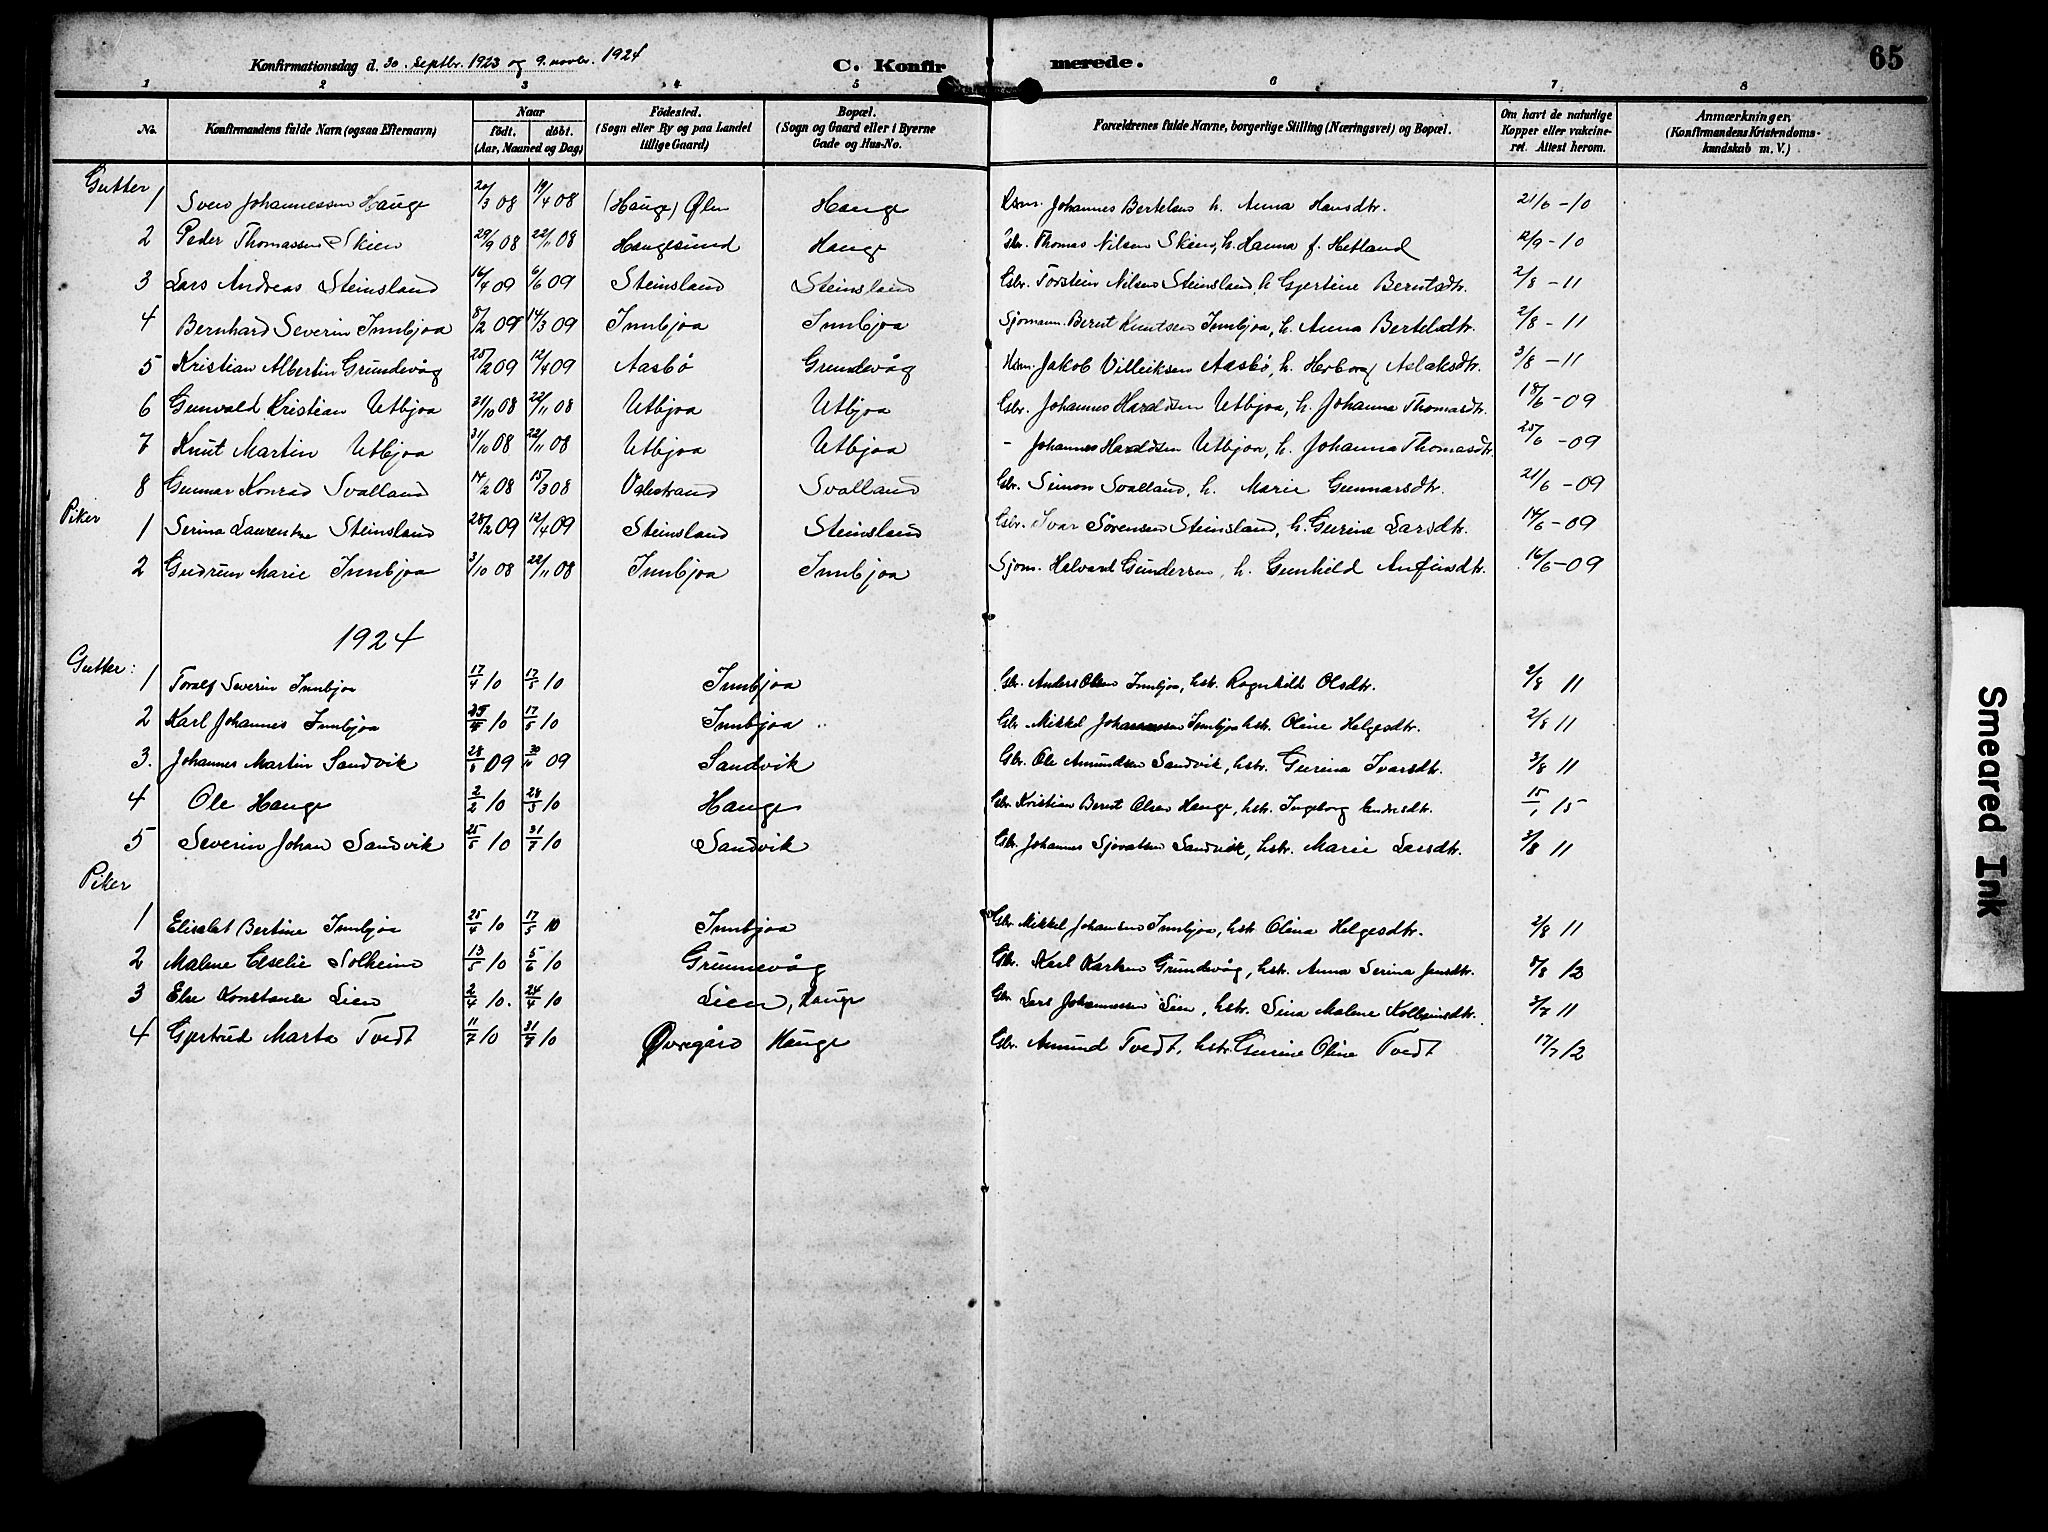 Konfirmationsdag d. 30. Septbr. 1923 og 9. novbr. 1924 C. Konfir merede. 65
1 2 3 4 5 6 7 8
No. Konfirmandens fulde Navn (ogsaa Efternavn) Naar födt. döbt. (Aar, Maaned og Dag) Födested. (Sogn eller By og paa Landet tillige Gaard) Bopæl. (Sogn og Gaard eller i Byerne Gade og Hus-No. Forældrenes fulde Navne, borgerlige Stilling (Næringsvei) og Bopæl. Om havt de naturlige Kopper eller vakcineret. Attest herom. Anmærkninger. (Konfirmandens Kristendomskundskab m. V.)
Gutter
1 Sven Johannessen Hauge 20/3 08 19/4 08 (Hauge) Ølen Hauge Johannes Bertelsen h. Anna Hansdtr. 21/6 - 10
2 Peder Thomassen Skien 29/9 08 22/11 08 Haugesund Hauge Thomas Nilsen Skien, h. Hanna f. Hetland 12/9 - 10
3 Lars Andreas Steinsland 16/4 09 6/6 09 Steinsland Steinsland Gbr. Torstein Nilsen Steinsland, h. Gjertine Berntsdtr. 2/8 - 11
4 Bernhard Severin Innbjoa 8/2 09 14/3 09 Innbjoa Innbjoa Sjomann. Bernt Knutsen Innbjoa, h. Anna Bertelsdtr. 2/8 - 11
5 Kristian Albertin Grundevåg 25/2 09 12/4 09 Aasbö Grundevåg Jakob Villeiksen Aasbö, h. Herborg Aslaksdtr. 3/8 - 11
6 Gunvald Kristian Utbjoa 31/10 08 22/11 08 Utbjoa Utbjoa Gbr. Johannes Haraldsen Utbjoa, h. Johanna Thomasdtr. 18/6 - 09
7 Knut Martin Utbjoa 31/10 08 22/11 08 Utbjoa Utbjoa - Johannes Haraldsen Utbjoa, h. Johanna Thomasdtr. 25/6 - 09
8 Gunnar Konrad Svalland 14/2 08 15/3 08 Valestrand Svalland Gbr. Simon Svalland, h. Marie Gunnarsdtr. 21/6 - 09
Piker
1 Serina Laurentse Steinsland 28/2 09 12/4 09 Steinsland Steinsland Gbr. Ivar Sörensen Steinsland, h. Gurine Larsdtr. 14/6 - 09
2 Gudrun Marie Innbjoa 3/10 08 22/11 08 Innbjoa Innbjoa Sjom. Halvard Gundersen, h. Gunhild Anfinsdtr. 16/6 - 09
1924
Gutter:
1 Toralf Severin Innbjoa 17/4 10 17/5 10 Innbjoa Gbr. Anders Olsen Innbjoa, hstr. Ragnhild Olsdtr. 2/8 11
2 Karl Johannes Innbjoa 25/4 10 17/5 10 Innbjoa Gbr. Mikkel Johannessen Innbjoa hstr. Oline Helgesdtr. 2/8 11
3. Johannes Martin Sandvik 09 09 Sandvik Gbr. Ole Amundsen Sandvik, hstr. Gurina Ivarsdtr. 3/8 11
4 Ole Hauge 2/2 10 28/3 10 Hauge Gbr. Kristian Bernt Olsen Hauge, hstr. Ingeborg Endresdtr. 15/1 15
5 Severin Johan Sandvik 25/5 10 31/7 10 Sandvik Gbr. Johannes Sjovatsen Sandvik, hstr. Marie Larsdtr. 3/8 11
Piker
1 Elisabet Bertine Innbjoa 25/4 10 17/5 10 Innbjoa Gbr. Mikkel Johansen Innbjoa, hstr. Olina Helgesdtr. 2/8 11
2 Malene Elselie Solheim 13/5 10 5/6 10 Grunnevåg Gbr. Karl Karlsen Grundevåg, hstr. Anna Serina Jensdtr. 8/8 12
3 Else Konstanse Lien 2/4 10. 24/4 10 Lien, Hauge Gbr. Lars Johannessen Lien, hstr. Sina Malene Kolbeinsdtr. 3/7 11
4 Gjertrud Marta Tvedt 11/7 10 31/7 10 Øvregård Hauge Gbr. Amund Tvedt, hstr. Gurine Oline Tvedt 17/7 12
Smeared Ink